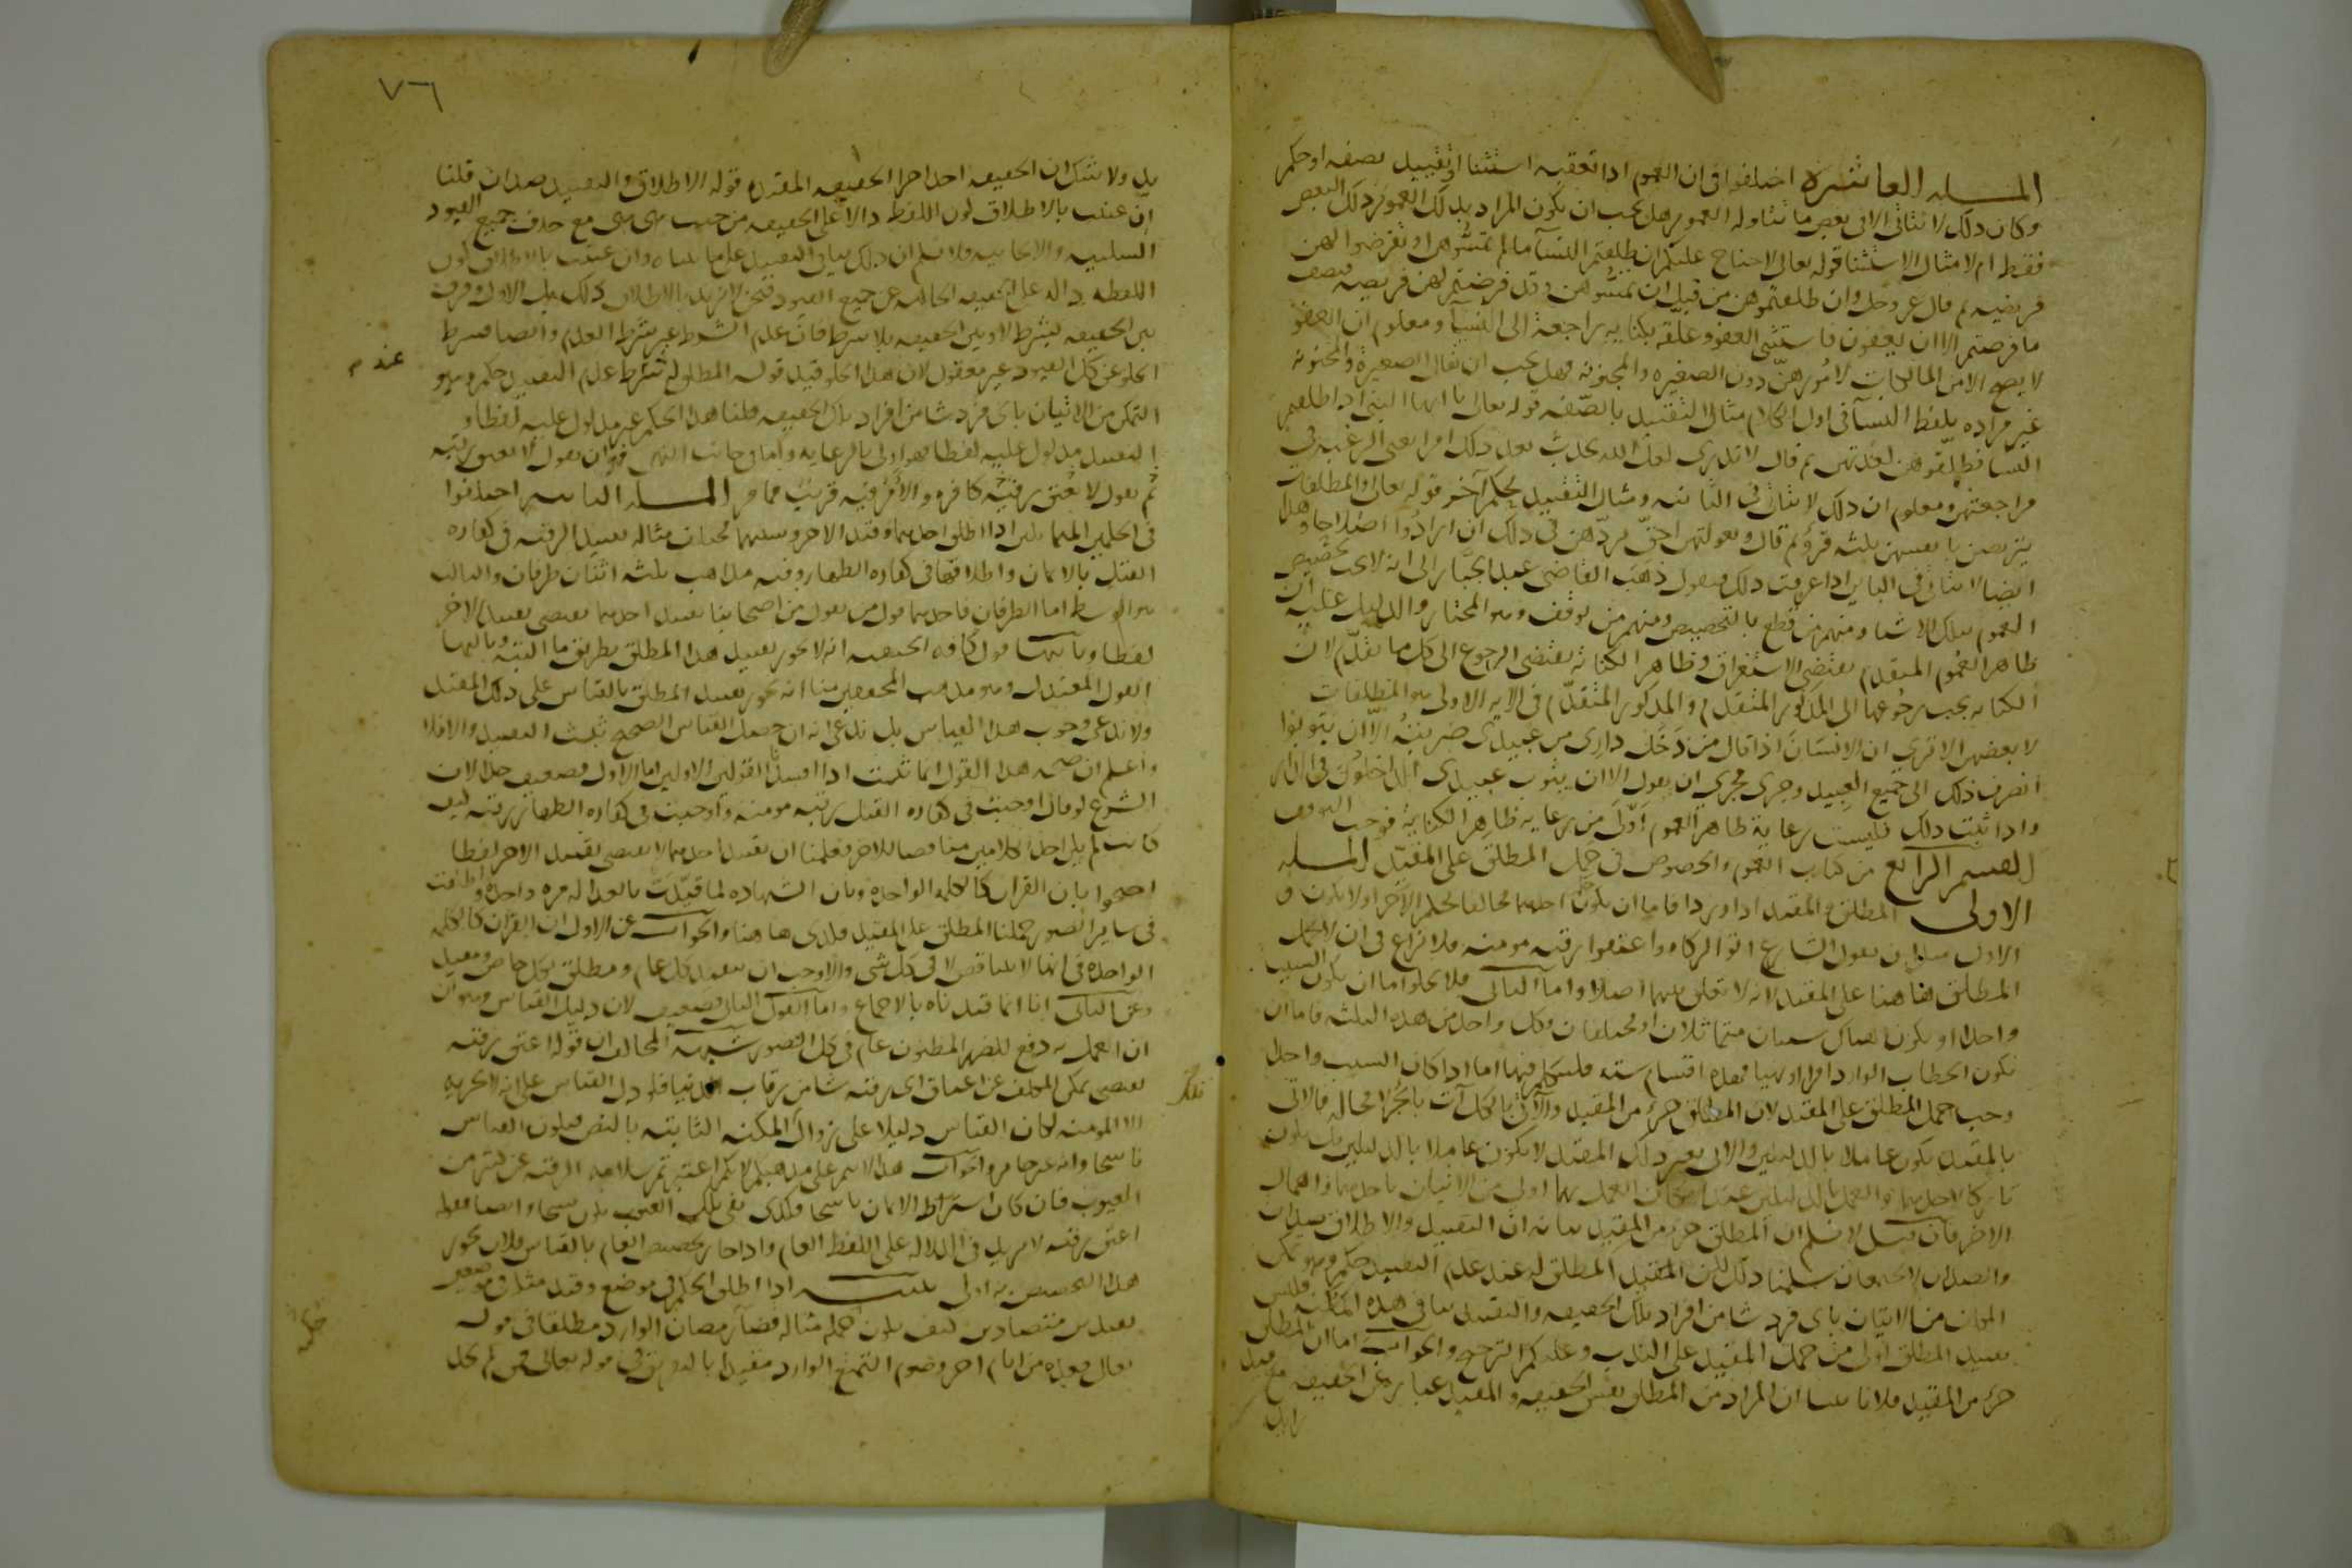 المسله العاشرة اختلفوا فى ان العموم اذا تعقبه استثنا او تقييد بصفه او حكم
وكان ذلك لا يتاتى الا فى بعض ما يتناوله العموم هل يجب ان يكون المراد بذلك العموم ذلك البعض
فقط ام لا مثال الاستثنا قوله تعالى لا جناح عليكم ان طلقتم النسآ ما لم تمسوهن او تفرضوا لهن
فريضه ثم قال عز وجل وان طلقتموهن من قبل ان تمسوهن وقد فرضتم لهن فريضه فنصف
ما فرضتم الا ان يعفون فاستثنى العفو وعلقه بكنايه راجعة الى النسآ ومعلوم ان العفو
لا يصح الا من المالكات لامورهن دون الصغيره والمجنونه فهل يجب ان يقال الصغيرة والمجنونه
غير مراده بلفظ النسآ فى اول الكلام مثال التقييد بالصفه قوله تعالى يا ايها النبى اذا طلقتم
النسا فطلقوهن لعدتهن ثم قال لا تدرى لعل الله يحدث بعد ذلك امرا يعنى الرغبه فى
مراجعتهن ومعلوم ان ذلك لا يتاتى فى البائنه ومثال التقييد بحكم آخر قوله تعالى والمطلقات
يتربصن بانفسهن ثلثه قروء ثم قال وبعولتهن احق بردهن فى ذلك ان ارادوا اصلاحا وهذا
ايضا لا يتاتى فى البائن اذا عرفت ذلك فنقول ذهب القاضى عبد الجبار الى انه لا يجب تخصيص
العموم بتلك الاشيا ومنهم من قطع بالتخصيص ومنهم من توقف وهو المختار والدليل عليه ان
ظاهر العموم المتقدم يقتضى الاستغراق وظاهر الكنايه يقتضى الرجوع الى كل ما تقدم لان
الكنايه يجب رجوعها الى المذكور المتقدم والمذكور المتقدم فى الايه الاولى هو المطلقات
لا بعضهن الا ترى ان الانسان اذا قال من دخل دارى من عبيدى ضربته الا ان يتوبوا
انصرف ذلك الى جميع العبيد وجرى مجرى ان يقول الا ان يتوب عبيدى الداخلون فى الدار
واذا ثبت ذلك فليست رعاية ظاهر العموم اولى من رعايه ظاهر الكناية فوجب التوقف
القسم الرابع من كتاب العموم والخصوص فى حمل المطلق على المقيد المسله
الاولى المطلق والمقيد اذا وردا فاما ان يكون حكم احدهما مخالفا لحكم الآخر او لا يكون و
الاول مثل ان يقول الشارع اتوا الزكاه واعتقوا رقبه مومنه فلا نزاع فى ان لا يحمل
المطلق هاهنا على المقيد لانه لا تعلق بينهما اصلا واما الثانى فلا يخلو اما ان يكون السبب
واحدا او يكون هناك سببان متماثلان او مختلفان وكل واحد من هذه الثلثه فاما ان
يكون الخطاب الوارد امرا او نهيا فهذه اقسام سته فلنتكلم فيها اما اذا كان السبب واحدا
وجب حمل المطلق على المقيد لان المطلق جزء من المقيد والاتى بالكل آت بالجزء لا محاله فالاتى
بالمقيد يكون عاملا بالدليلين والاتى بغير ذلك المقيد لا يكون عاملا بالدليلين بل يكون
تاركا لاحدهما والعمل بالدليلين عند امكان العمل بهما اولى من الاتيان باحدهما واهمال
الاخر فان قيل لا نسلم ان المطلق جزء من المقيد بيانه ان التقييد والاطلاق ضدان
والضدان لا يجتمعان سلمنا ذلك لكن المقيد المطلق له عند عدم التقييد حكم وهو تمكن
المكلف من الاتيان باى فرد شا من افراد تلك الحقيقه والتقييد ينافى هذه المكنه فليس
تقييد المطلق اولى من حمل المقيد على الندب وعليكم الترجيح والجواب اما ان المطلق
جزء من المقيد فلانا بينا ان المراد من المطلق نفس الحقيقه والمقيد عباره عن الحقيقه مع قيد
زايد
٧٦
بد ولا شك ان الحقيقه احد اجزا الحقيقه المقيده قوله الاطلاق والتقييد ضدان قلنا
ان عنيت بالاطلاق كون اللفظ دالا على الحقيقه من حيث هى هى مع حذف جميع القيود
السلبيه والايجابيه فلا نسلم ان ذلك ينافى التقييد على ما بيناه وان عنيت بالاطلاق كون
اللفظه داله على الحقيقه الخاليه عن جميع القيود فنحن لا نريد بالاطلاق ذلك بل الاول وفرق
بين الحقيقه بشرط لا وبين الحقيقه بلا شرط فان عدم الشرط غير شرط العدم وايضا فشرط
الخلو عن كل القيود غير معقول لان هذا الخلو قيد قوله المطلق له بشرط عدم التقييد حكم وهو
عند م
التمكن من الاتيان باى فرد شا من افراد تلك الحقيقه قلنا هذا الحكم غير مدلول عليه لفظا و
التقييد مدلول عليه لفظا فهو اولى بالرعايه واما فى جانب النهى فهو ان يقول لا تعتق رقبه
ثم يقول لا تعتق رقبة كافره والامر فيه قريب مما مر المسله الثانيه اختلفوا
فى الحكمين المتماثلين اذا اطلق احدهما وقيد الاخر وسببهما مختلف مثاله تقييد الرقبه فى كفاره
القتل بالايمان واطلاقها فى كفاره الظهار وفيه مذاهب ثلثه اثنان طرفان والثالث
هو الوسط اما الطرفان فاحدهما قول من يقول من اصحابنا تقييد احدهما يقتضى تقييد الاخر
لفظا وثانيهما قول كافه الحنفيه انه لا يجوز تقييد هذا المطلق بطريق ما البته وثالثها
القول المعتدل وهو مذهب المحققين منا انه يجوز تقييد المطلق بالقياس على ذلك المقيد
ولا ندعى وجوب هذا القياس بل ندعى انه ان حصل القياس الصحيح ثبت التقييد والا فلا
واعلم ان صحه هذا القول انما تثبت اذا افسدنا القولين الاولين اما الاول فضعيف جدا لان
الشرع لو قال اوجبت فى كفاره القتل رقبه مومنه واوجبت فى كفاره الظهار رقبه كيف
كانت لم يكن احد الكلامين مناقضا للاخر فعلمنا ان تقييد احدهما لا يقتضى تقييد الاخر لفظا
احتجوا بان القران كالكلمه الواحده وبان الشهاده لما قيدت بالعداله مره واحدة واطلقت
فى ساير الصور حملنا المطلق على المقيد فكذى هاهنا والجواب عن الاول ان القران كالكلمه
الواحده فى انها لا تتناقض لا فى كل شى والا وجب ان يتقيد كل عام ومطلق بكل خاص ومقيد
وعن الثانى انا انما قيدناه بالاجماع واما القول الثانى فضعيف لان دليل القياس وهو ان
ان العمل به دفع للضرر المظنون عام فى كل الصور شبهه المخالف ان قوله اعتق رقبه
يقتضى تمكن المكلف من اعتاق اى رقبه شا من رقاب الدنيا فلو دل القياس على انه لا يجزيه
الا المومنه لكان القياس دليلا على زوال المكنه الثابته بالنص فيكون القياس
ناسخا وانه غير جايز والجواب هذا لازم على مذهبكم لانكم اعتبرتم سلامه الرقبه عن كثير من
العيوب فان كان اشتراط الايمان ناسخا فكذى نفى تلك العيوب يكون نسخا وايضا فقوله
اعتق رقبه لا يزيد فى الدلاله على اللفظ العام واذا جاز تخصيص العام بالقياس فلان يجوز
هذا التخصيص به اولى تنبيه اذا اطلق الحكم فى موضع وقيد مثله فى موضعين
بقيدين متضادين كيف يكون حكمه مثاله قضآ رمضان الوارد مطلقا فى قوله
حكمه
تعالى فعده من ايام اخر وصوم التمتع الوارد مقيدا بالتفريق فى قوله تعالى فمن لم يجد